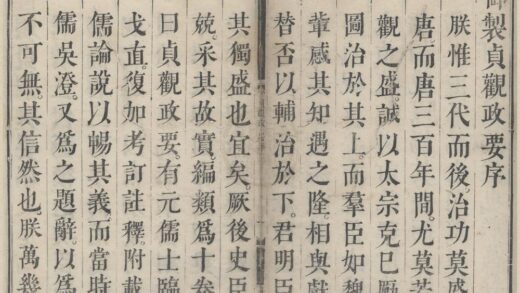 御製貞觀政要序
朕惟三代而後。治功莫盛
唐而唐三百年間。尤莫若
觀之盛。誠以太宗克己厲
圖治於其上。而羣臣如魏
輩感其知遇之隆。相與獻
替否以輔治於下。君明臣
其獨盛也宜矣。厥後史臣
兢。采其故實。編類爲十卷
曰貞觀政要。有元儒士臨
戈直。復加考訂註釋。附載
儒論說以暢其義。而當時
儒吳澄。又爲之題辭。以爲
不可無其信然也。朕萬幾